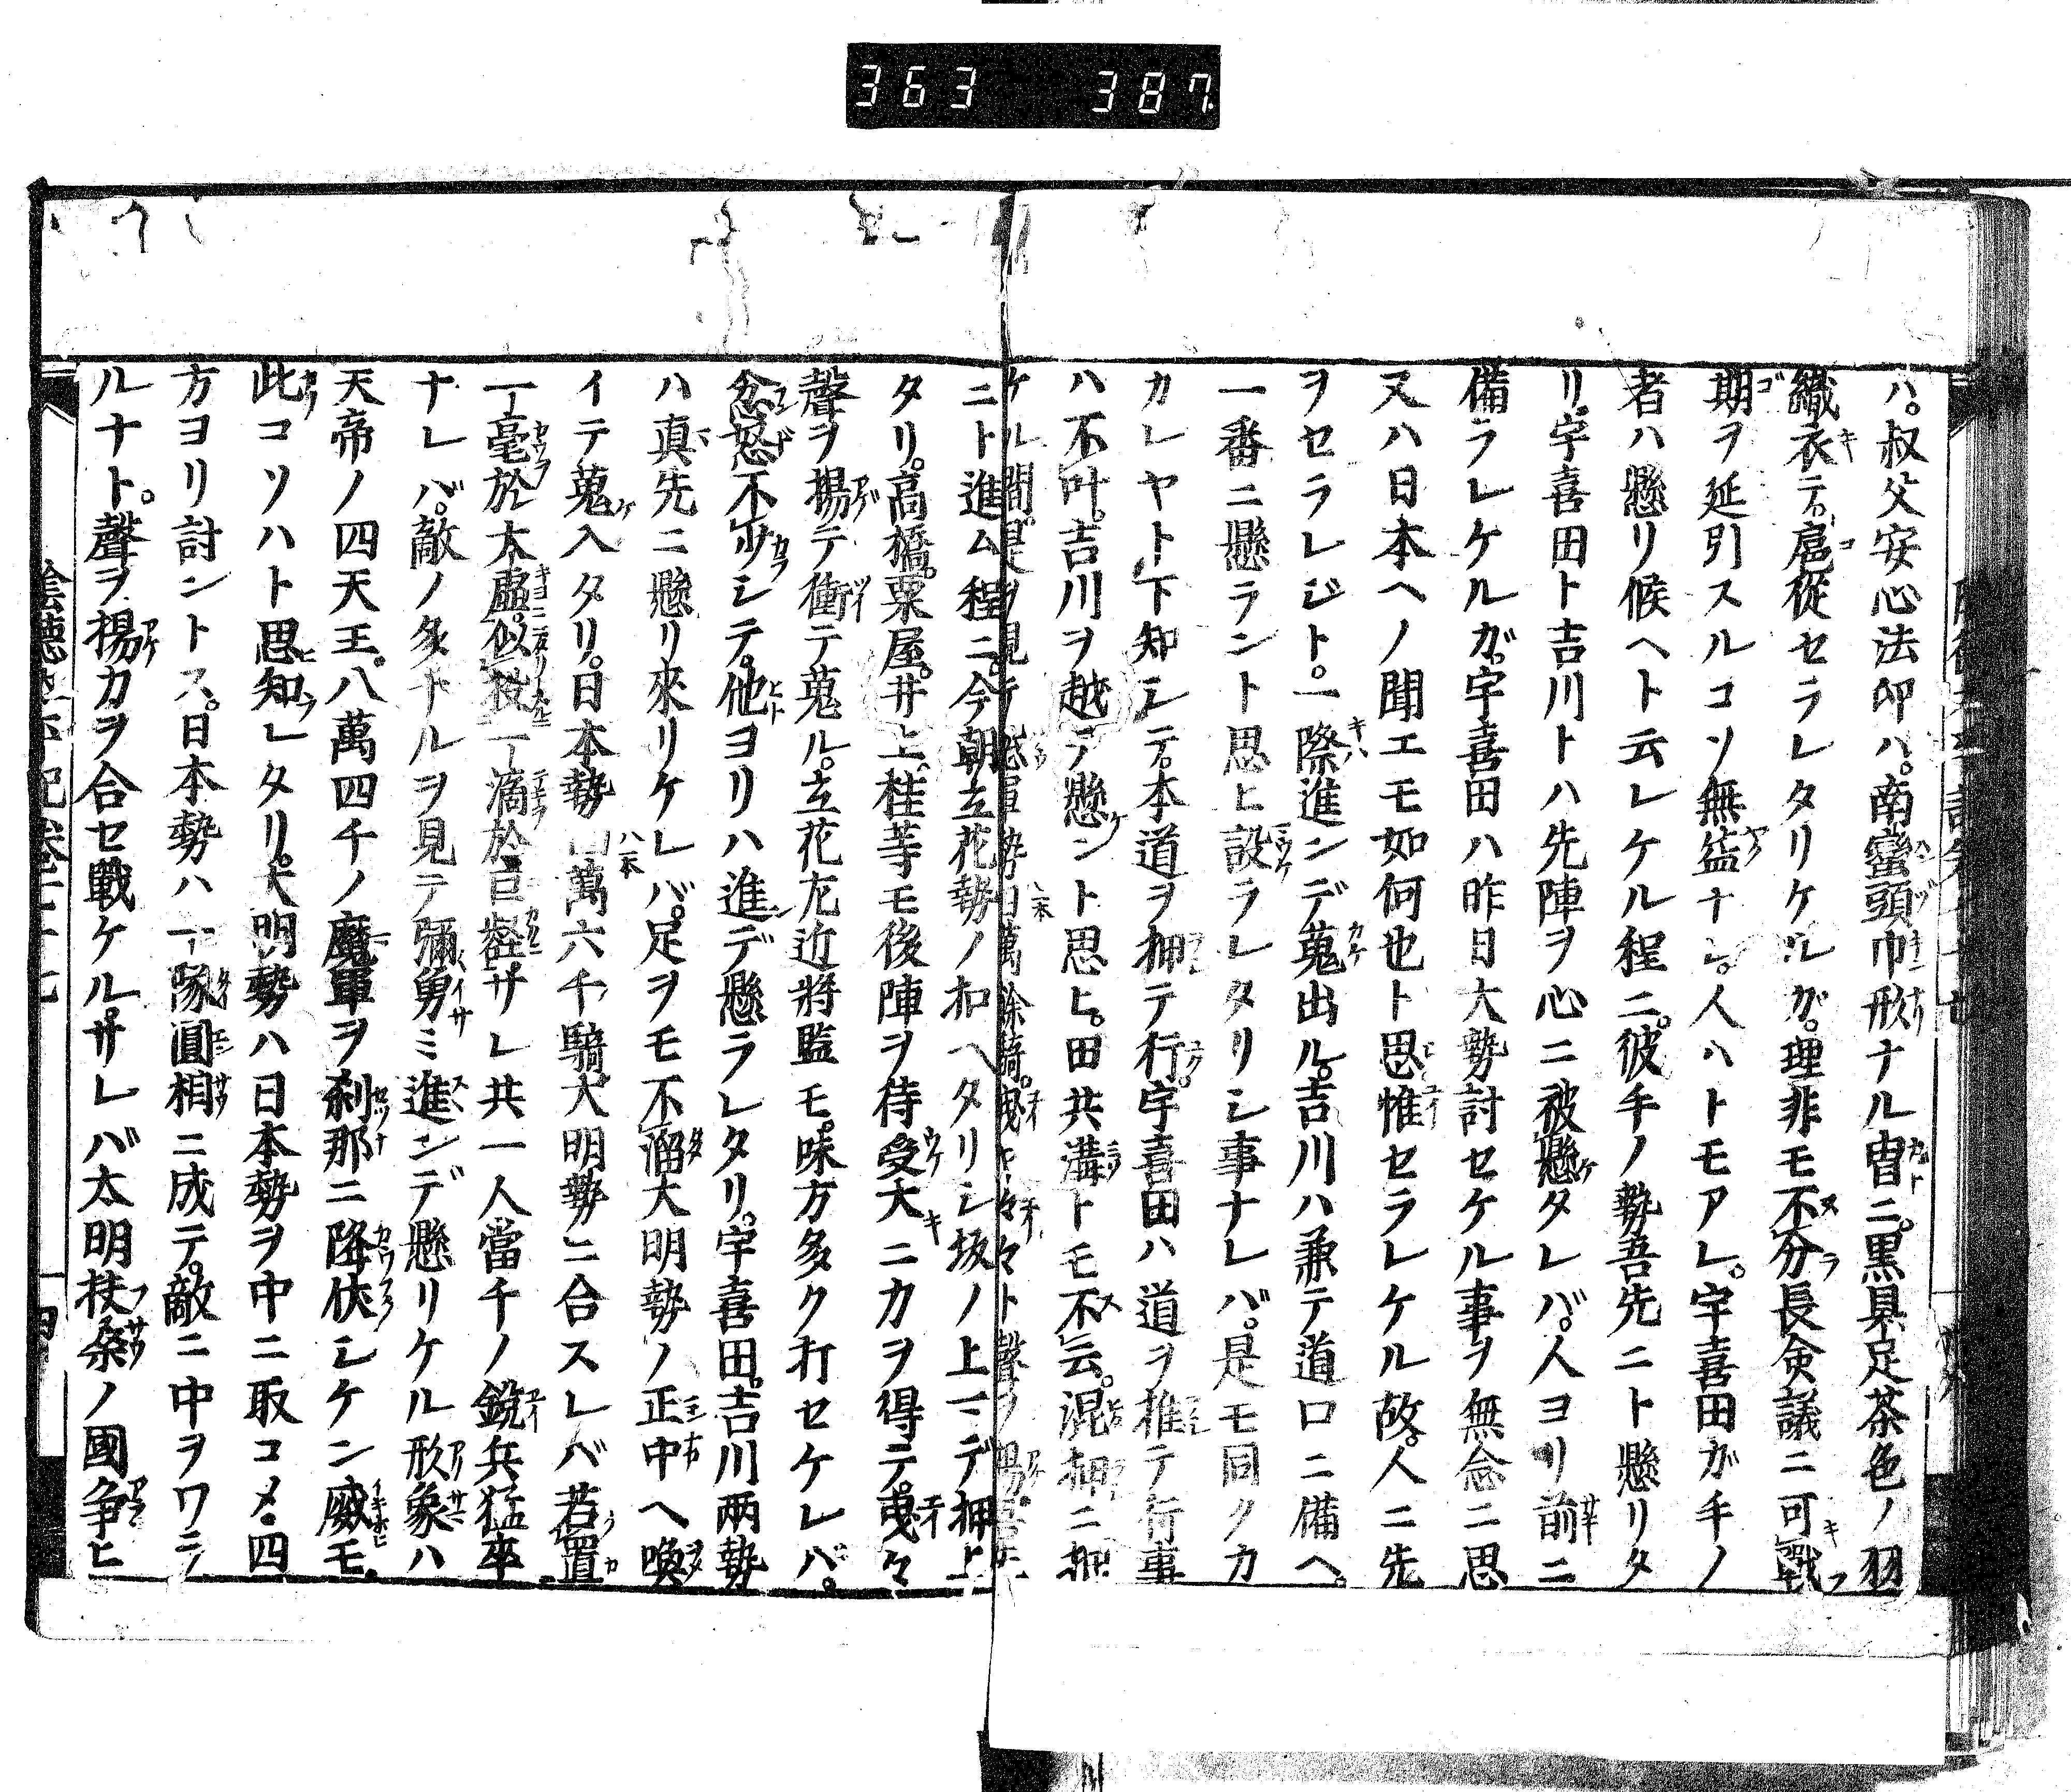 363 387
ハ。叔父安心法印ハ。南蠻頭巾形ナル冑ニ。黒具足茶色ノ羽
織衣テ。扈從セラレタリケルガ。理非モ不分長僉議ニ可戰
期ヲ延引スルコソ無益ナレ。人ハトモアレ。宇喜田ガ手ノ
者ハ懸リ候ヘト云レケル程ニ。彼手ノ勢吾先ニト懸リタ
リ。宇喜田ト吉川トハ先陣ヲ心ニ被懸タレバ。人ヨリ前ニ
備ラレケルガ。宇喜田ハ昨日大勢討セケル事ヲ無念ニ思
又ハ日本ヘノ聞エモ如何也ト思惟セラレケル故。人ニ先
ヲセラレジト。一際進ンデ蒐出ル。吉川ハ兼テ道口ニ備ヘ。
一番ニ懸ラント思ヒ設ラレタリシ事ナレバ。是モ同クカ
カレヤト下知シテ。本道ヲ押テ行。宇喜田ハ道ヲ推テ行事
ハ不叶。吉川ヲ越テ懸ント思ヒ。田共溝トモ不云。混押ニ押
ケル間。是ヲ見テ惣軍勢 萬餘騎。曳々々ト聲ヲ揚。吾先
ニト進ム程ニ。今朝立花勢ノ扣ヘタリシ坂ノ上マデ押上
タリ。高橋。粟屋。井上。桂等モ後陣ヲ待受大ニカヲ得テ。曳々
聲ヲ揚テ衝テ蒐ル。立花左近將監モ。味方多ク打セケレバ。
忿怒不少シテ。他ヨリハ進デ懸ラレタリ。宇喜田。吉川兩勢
ハ真先ニ懸リ來リケレバ。足ヲモ不溜大明勢ノ正中ヘ喚
イテ蒐入タリ。日本勢 萬六千騎大明勢ニ合スレバ若置
一毫於大虚。似投一滴於巨壑。サレ共一人當千ノ鋭兵猛卒
ナレバ。敵ノ多ナルヲ見テ彌勇ミ進ンデ懸リケル形象ハ
天帝ノ四天王。八萬四千ノ魔軍ヲ刹那ニ降伏シケン威モ。
此コソハト思知レタリ。大明勢ハ日本勢ヲ中ニ取コメ。四
方ヨリ討ントス。日本勢ハ一隊圓相ニ成テ。敵ニ中ヲワニ
ルナト。聲ヲ揚カヲ合セ戰ケル。サレバ太明扶桒ノ國争ヒ